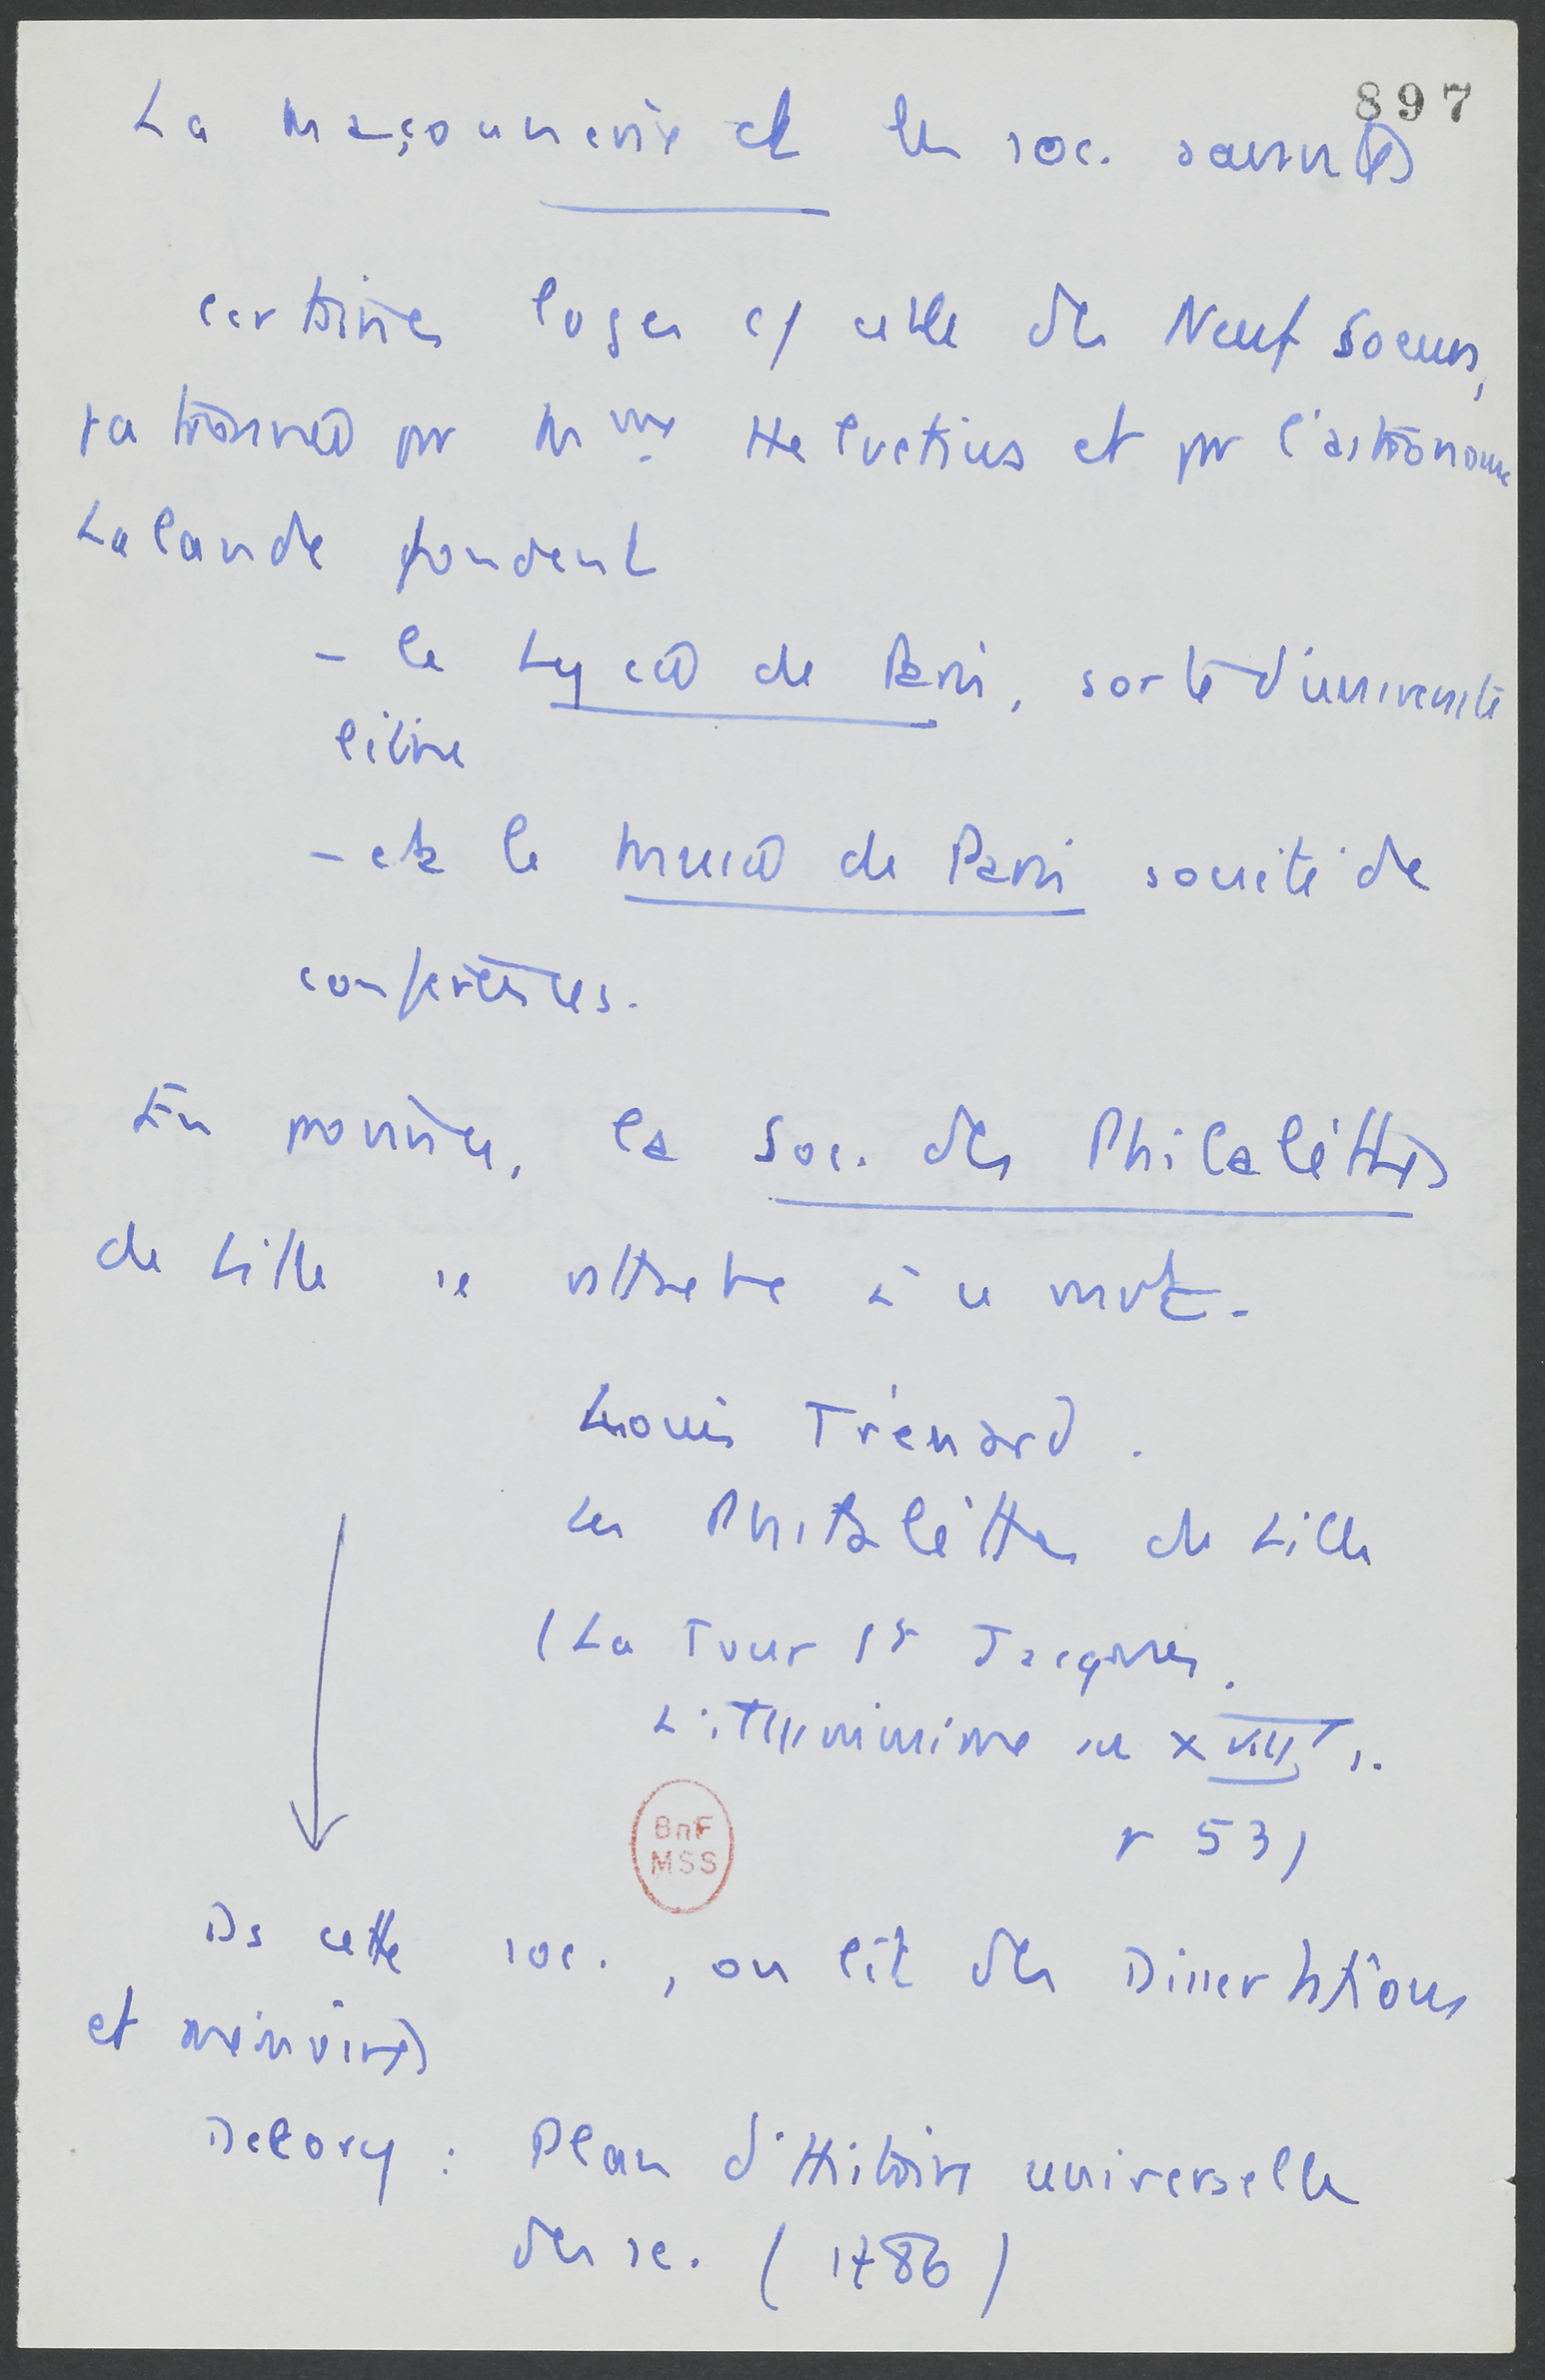 897
La Maçonnerie et les soc. savantes
certaines loges c/ celle des Neuf Soeurs,
patronnée par Mme Helvetius et par l'astronome
Lalande fondent
- le Lycée de Paris, sorte d'université
libre
- et le Musée de Paris société de
conférences.
En province, la Soc. des Philalèthes
de Lille se rattache à ce mvt.
Louis Trénard.
Les Philalèthes de Lille
(La Tour St Jacques.
L'illuminisme au XVIII s.
p 53)
BnF
MSS
Ds cette soc., on lit des Dissertations
et mémoires
Delory : Plan d'Histoire universelle
des sc. (1786)